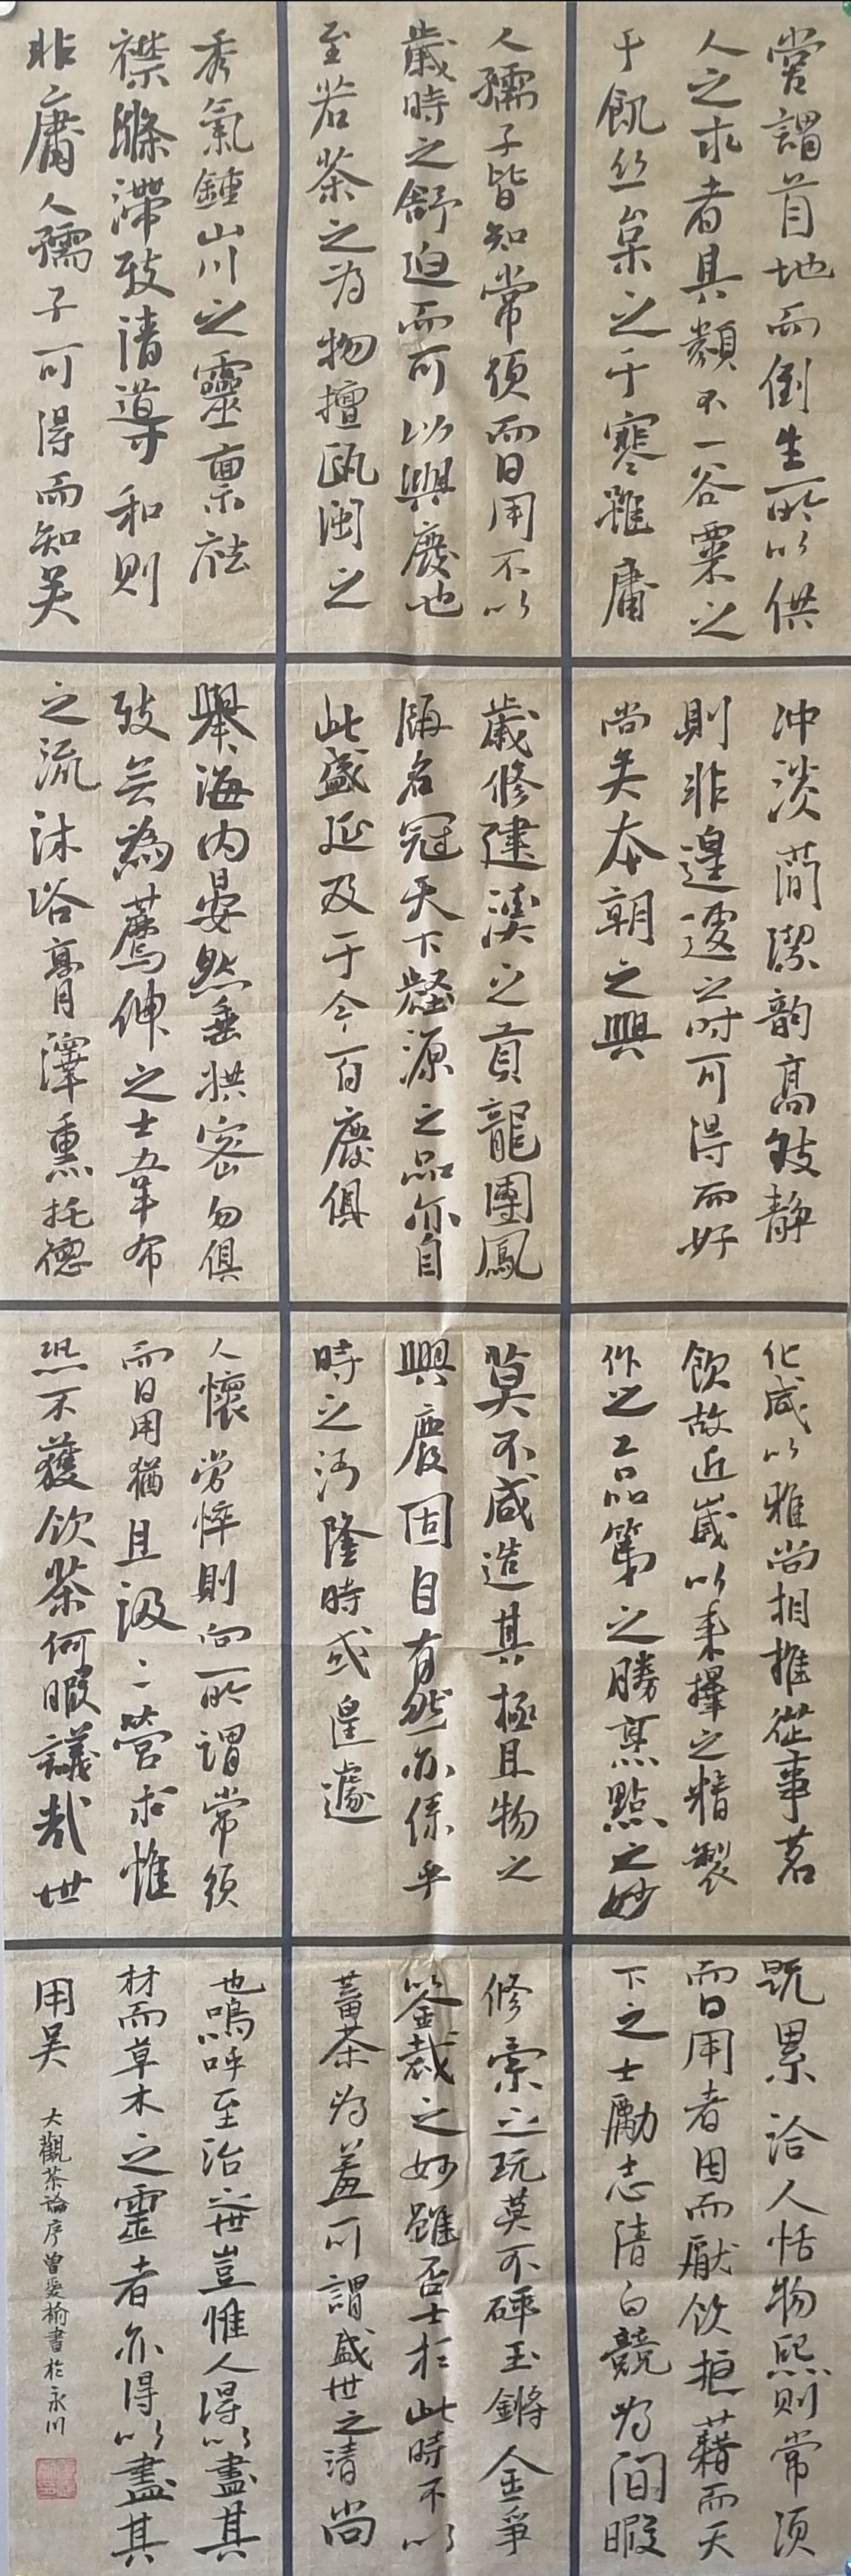 嘗謂首地而倒生所以供
人之求者其類不一谷粟之
于飢丝枲之于寒雖庸
人孺子皆知常須而日用不以
歲時之舒迫而可以興廢也
至若茶之为物擅甌闽之
秀氣鍾山川之靈禀祛
襟滌滯致清導和則
非庸人孺子可得而知矣
冲淡蕳潔韵高致静
則非遑遽之时可得而好
尚矣本朝之興
歲修建溪之貢龍團鳳
餅名冠天下壑源之品亦自
此盛延及于今百廢俱
舉海内晏然垂拱密勿俱
致无為薦紳之士韋布
之流沐浴膏澤熏托德
化咸以雅尚相推從事茗
飲故近歲以来擇之精製
作之工品第之勝烹點之妙
莫不咸造其極且物之
興廢固自有然亦係乎
時之污隆時或遑遽
人懷劳悴則向所謂常須
而日用猶且汲〻營求惟
恐不獲饮茶何暇議哉世
既累洽人恬物熙則常須
而日用者因而厭饫狼藉而天
下之士勵志清白競为閒暇
修索之玩莫不碎玉鏘金争
鉴裁之妙雖否士於此時不以
蓄茶为羞可謂盛世之清尚
也嗚呼至治之世豈惟人得以盡其
材而草木之靈者亦得以盡其
用矣 大觀茶論序曾爱榆書於永川